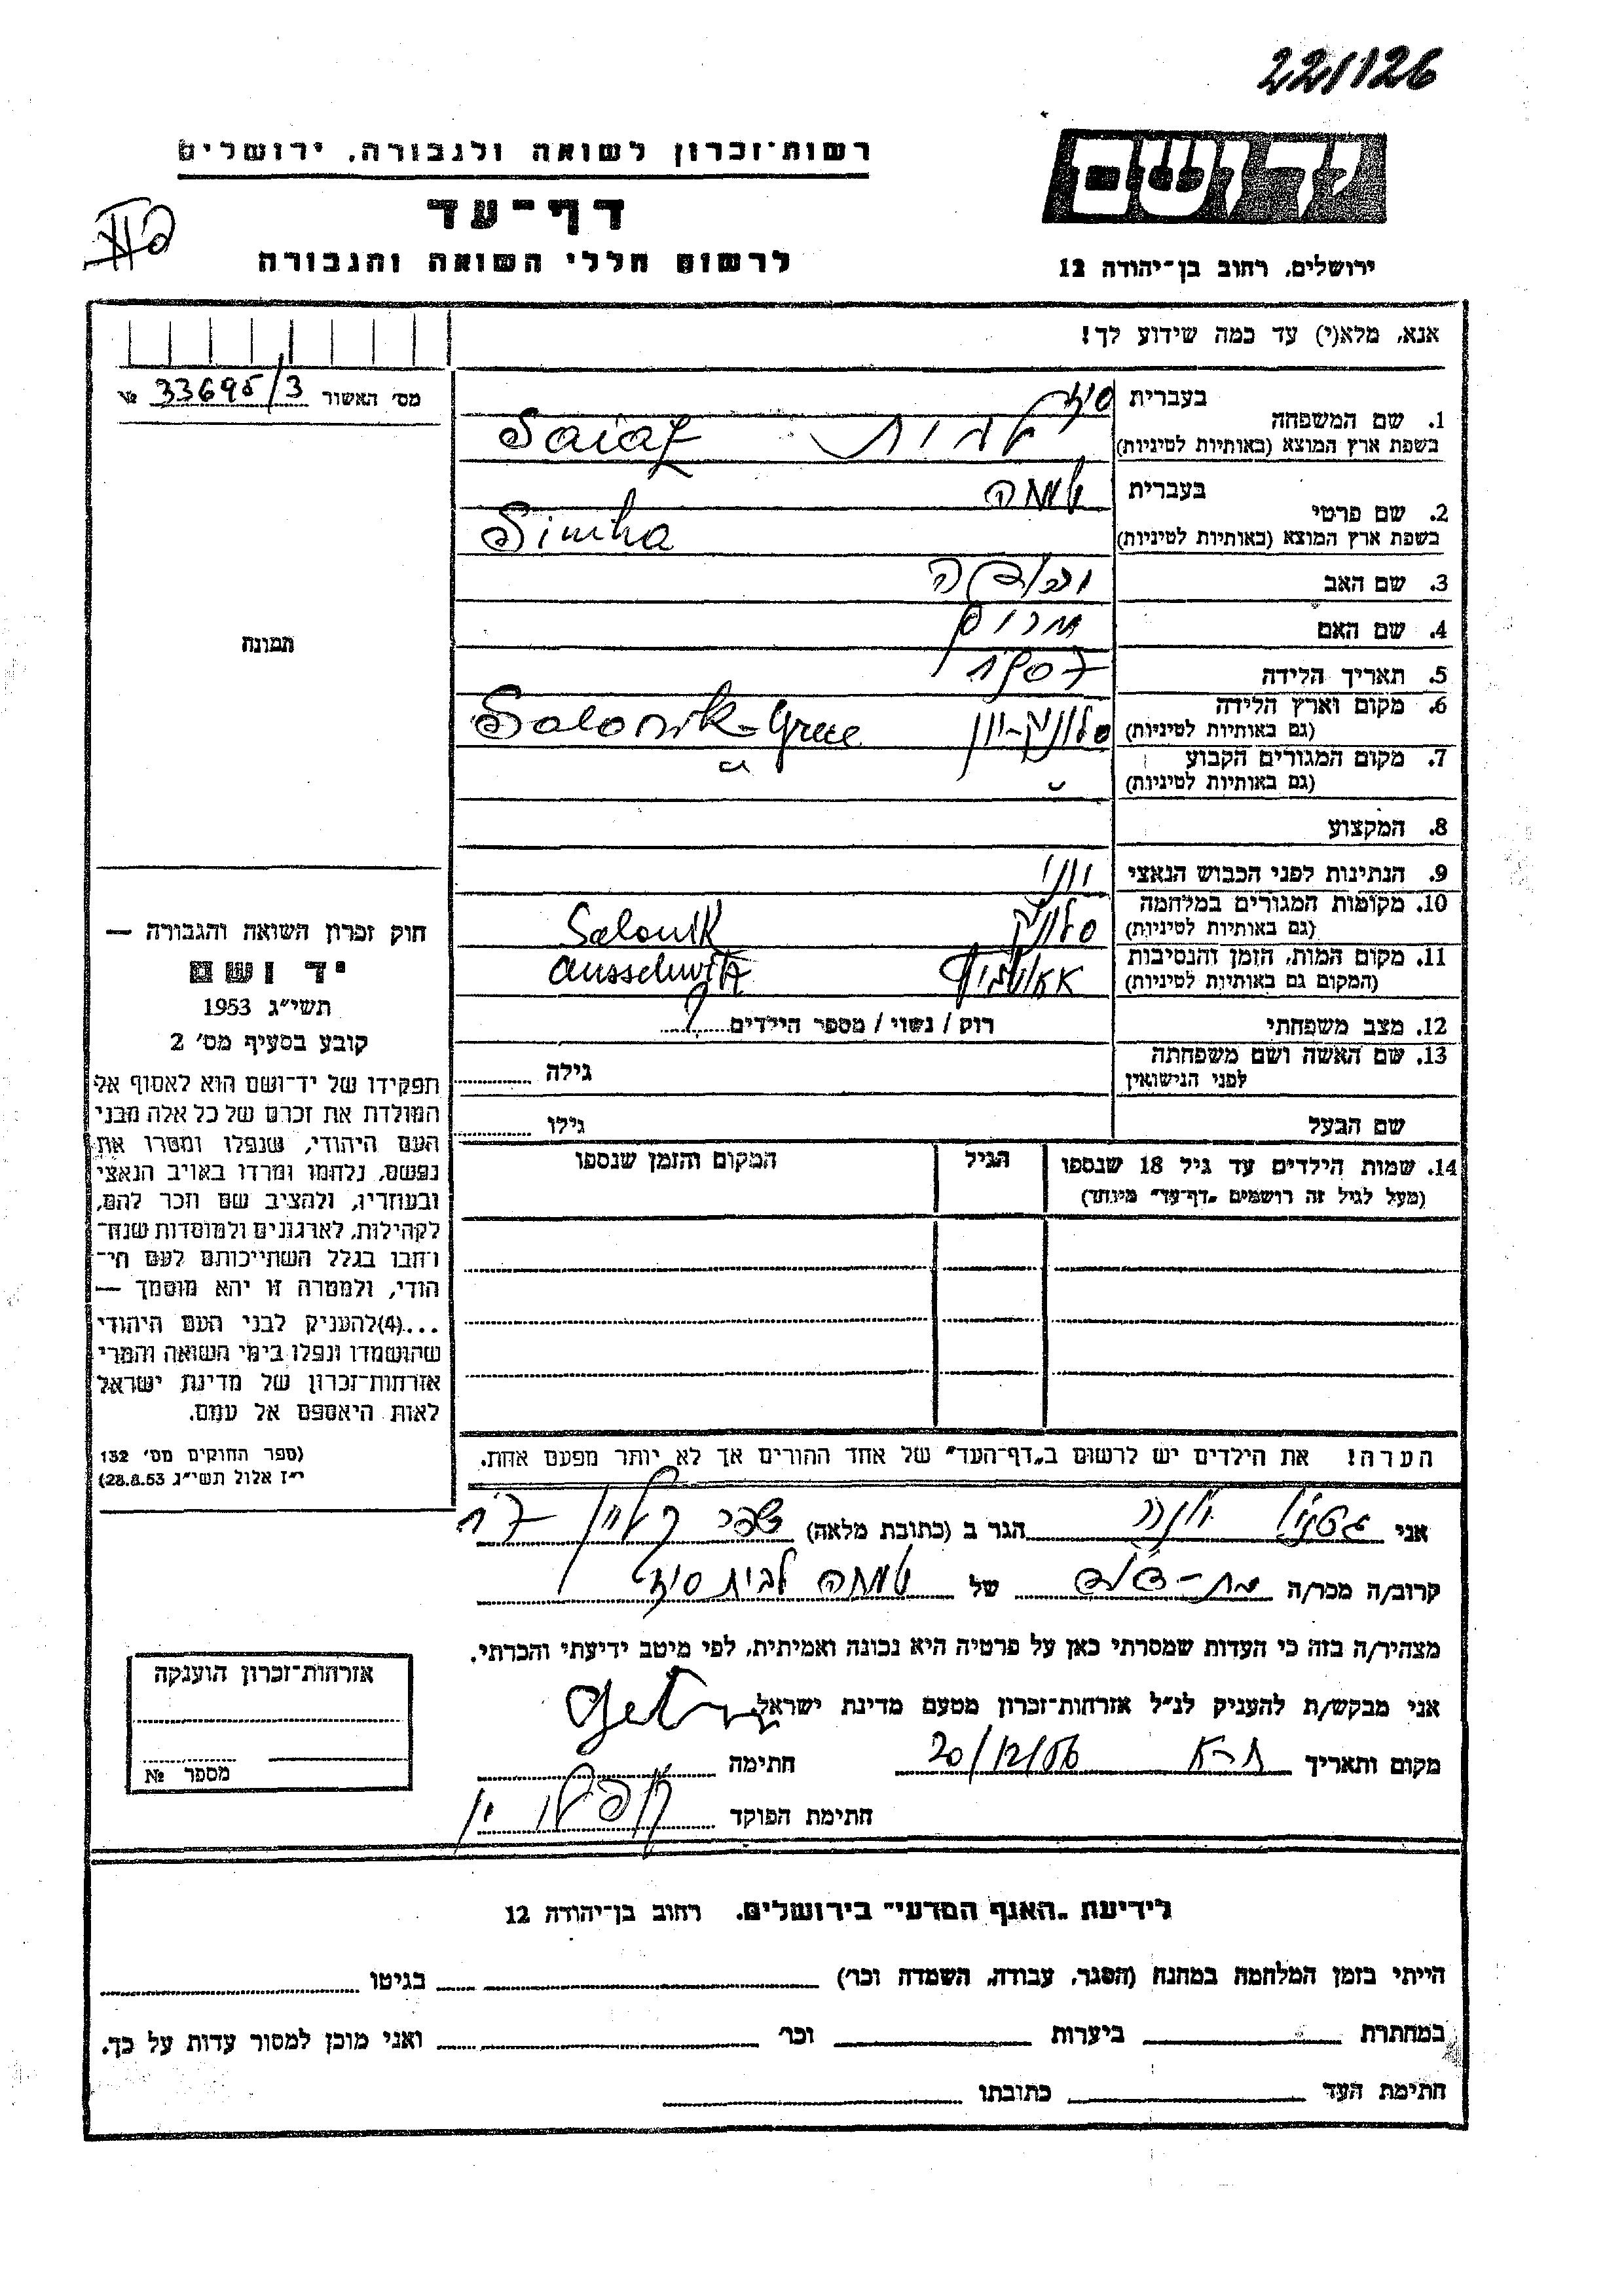 221126
רשות־זכרון לשואה ולגבורה, ירושלים
יד ושם
דף־עד
לרשום חללי השואה והגבורה
ירושלים, רחוב בן־יהודה 12
אנא, מלא(י) עד כמה שידוע לך!
מס׳ האשור № 33695/3
1. שם המשפחה בעברית
בשפת ארץ המוצא (באותיות לטיניות) Saiaz
2. שם פרטי בעברית שמחה
בשפת ארץ המוצא (באותיות לטיניות) Simha
3. שם האב
4. שם האם מרים
תמונה
5. תאריך הלידה
6. מקום וארץ הלידה
(גם באותיות לטיניות) סלוניק-יון Salonik-Grece
7. מקום המגורים הקבוע
(גם באותיות לטיניות) "
8. המקצוע
9. הנתינות לפני הכבוש הנאצי יווני
10. מקומות המגורים במלחמה
(גם באותיות לטיניות) סלוניק Salonik
11. מקום המות, הזמן והנסיבות
(המקום גם באותיות לטיניות) אאושויץ Ausschwitz
12. מצב משפחתי רוק / נשוי / מספר הילדים ?
13. שם האשה ושם משפחתה
לפני הנישואין גילה
שם הבעל גילו
14. שמות הילדים עד גיל 18 שנספו הגיל המקום והזמן שנספו
(מעל לגיל זה רושמים „דף־עד״ מיוחד)
חוק זכרון השואה והגבורה —
יד ושם
תשי״ג 1953
קובע בסעיף מס׳ 2
תפקידו של יד־ושם הוא לאסוף אל
המולדת את זכרם של כל אלה מבני
העם היהודי, שנפלו ומסרו את
נפשם, נלחמו ומרדו באויב הנאצי
ובעוזריו, ולהציב שם וזכר להם,
לקהילות, לארגונים ולמוסדות שנח־
רחבו בגלל השתייכותם לעם חי־
הודי, ולמטרה זו יהא מוסמך —
...(4)להעניק לבני העם היהודי
שהושמדו ונפלו בימי השואה והמרי
אזרחות־זכרון של מדינת ישראל
לאות היאספם אל עמם.
(ספר החוקים מס׳ 132
י״ז אלול תשי״ג 28.8.53)
הערה! את הילדים יש לרשום ב„דף־העד״ של אחד ההורים אך לא יותר מפעם אחת.
אני הגר ב (כתובת מלאה)
קרוב/ה מכר/ה של שמחה לבית
מצהיר/ה בזה כי העדות שמסרתי כאן על פרטיה היא נכונה ואמיתית, לפי מיטב ידיעתי והכרתי.
אני מבקש/ת להעניק לנ״ל אזרחות־זכרון מטעם מדינת ישראל.
מקום ותאריך ת-א 20/12/56 חתימה
חתימת הפוקד
אזרחות־זכרון הוענקה
מספר №
לידיעת „האגף המדעי״ בירושלים, רחוב בן־יהודה 12
הייתי בזמן המלחמה במחנה (הסגר, עבודה, השמדה וכר׳) בגיטו
במחתרת ביערות וכר׳ ואני מוכן למסור עדות על כך.
חתימת העד כתובתו